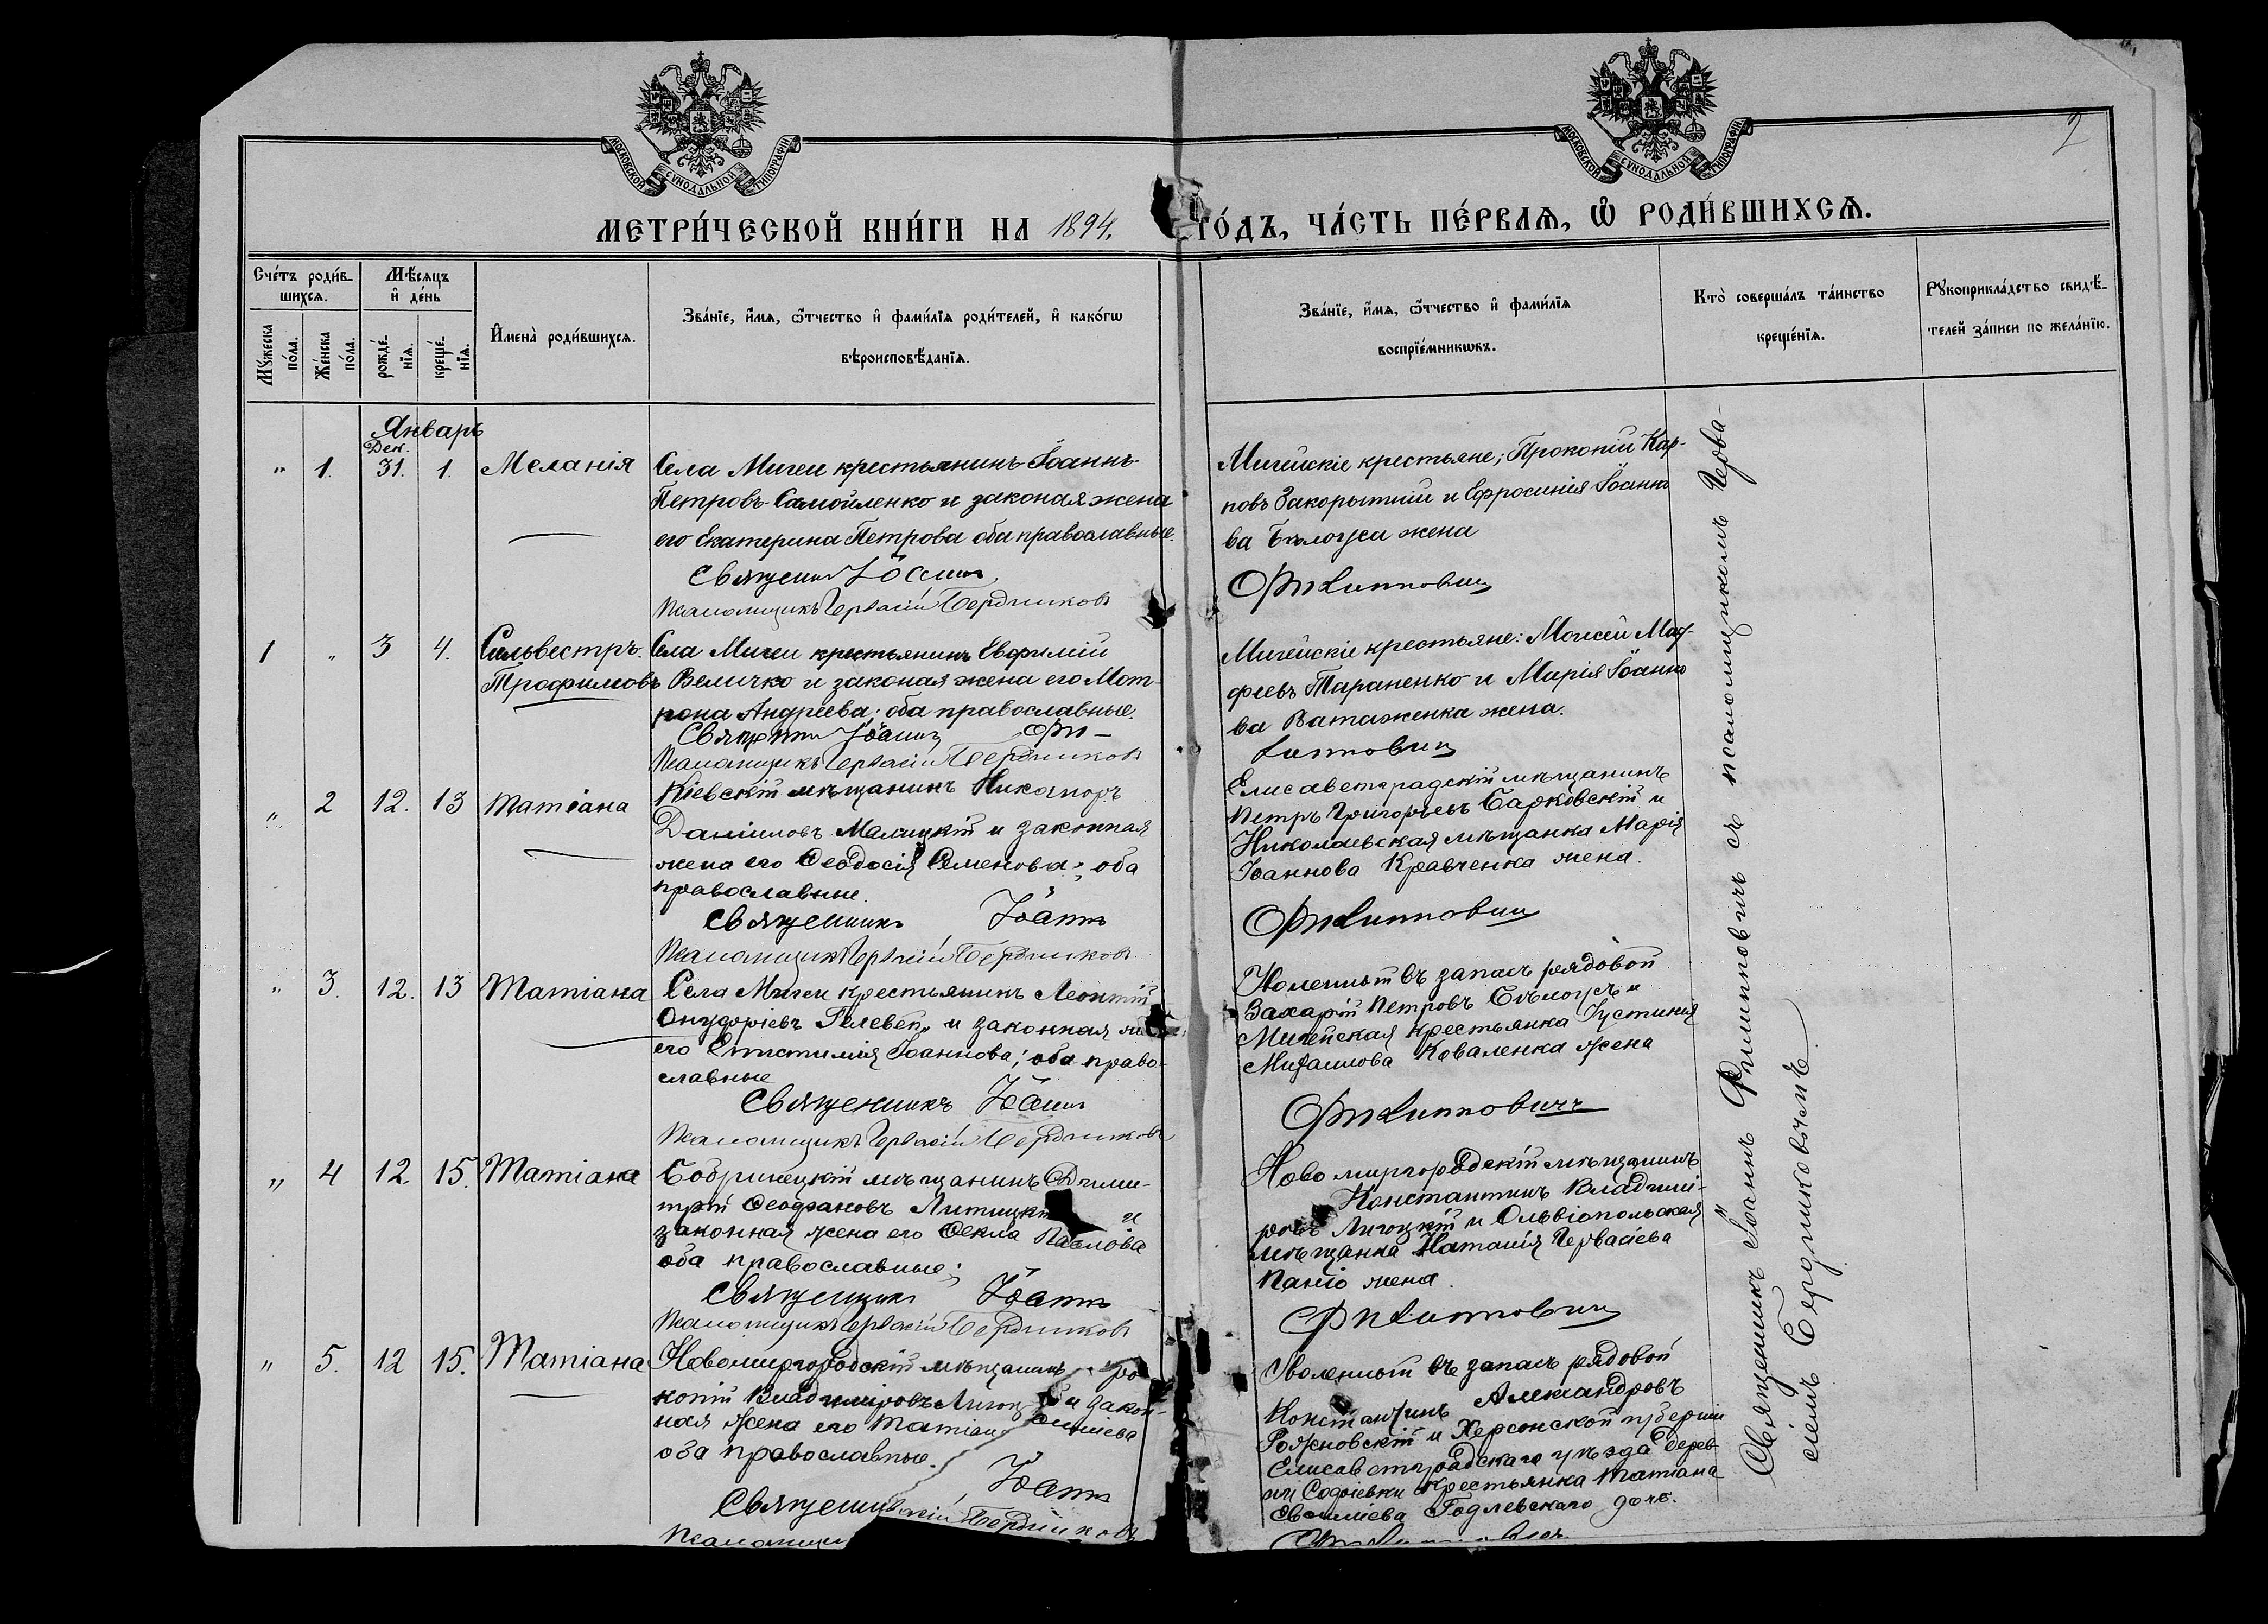 МОСКОВСКОЙ СѴНОДАЛЬНОЙ ТИПОГРАФІИ
МОСКОВСКОЙ СѴНОДАЛЬНОЙ ТИПОГРАФІИ
2
МЕТРИ́ЧЕСКОЙ КНИ́ГИ НА 1894. ГО́ДЪ, ЧА́СТЬ ПЕ́РВАѦ, Ѡ҆ РОДИ́ВШИХСѦ.
Сче́тъ роди́в-
шихсѧ.
Мꙋжеска по́ла.
Же́нска по́ла.
Мѣ́сѧцъ
и҆ де́нь
рожде́-
нїѧ.
креще́-
нїѧ.
И҆мена̀ роди́вшихсѧ.
Зва́нїе, и҆́мѧ, ѻ҆́тчество и҆ фами́лїѧ роди́телей, и҆ како́гѡ
вѣроисповѣ́данїѧ.
Зва́нїе, и҆́мѧ, ѻ҆́тчество и҆ фами́лїѧ
воспрїе́мникѡвъ.
Кто̀ соверша́лъ та́инство
креще́нїѧ.
Рꙋкоприкла́дство свидѣ́-
телей за́писи по жела́нїю.
Январь
Дек.
" 1. 31. 1. Меланія
Села Мигеи крестьянинъ Іоаннъ
Петровъ Самойленко и законая жена
его Екатерина Петрова оба православные.
Священ Іоаннъ
Псаломщикъ Герvасій Бердниковъ
Мигейскіе крестьяне; Прокопій Кар-
повъ Закорытній и Ефросинія Іоанно
ва Бѣлоуса жена
Филиповичъ
1 " 3 4. Сильвестръ.
Села Мигеи крестьянинъ Евфимій
Трофимовъ Величко и законая жена его Мот-
рона Андреева; оба православные.
Священ Іоаннъ Фи-
Псаломщикъ Герvасій Бердниковъ
Мигейскіе крестьяне: Моисей Мат-
фіевъ Тараненко и Марія Іоанно
ва Ватаженка жена.
липовичъ
" 2 12. 13 Татіана
Кіевскій мѣщанинъ Никаноръ
Даніиловъ Малицкій и законная
жена его Ѳеодосія Семенова; оба
православные.
Священникъ Іоаннъ
Псаломщикъ Герvасій Бердниковъ
Елисаветградскій мѣщанинъ
Петръ Григорьевъ Барковскій и
Николаевская мѣщанка Марія
Іоаннова Кравченка жена.
Филиповичъ
" 3. 12. 13 Татіана
Села Мигеи крестьянинъ Леонтій
Онуфріевъ и законная
его Іоаннова; оба право-
славные
Священникъ Іоаннъ
Псаломщикъ Герvасій Бердниковъ
Уволенный въ запасъ рядовой
Захарій Петровъ Бѣлоусъ и
Мигейская крестьянка Іустинія
Михаилова Коваленка жена
Филиповичъ
" 4 12. 15. Татіана
Бобринецкій мѣщанинъ Дими-
трій Ѳеофановъ и
законная жена его Ѳекла Павлова
оба православные;
Священникъ Іоаннъ
Псаломщикъ Герvасій Бердниковъ
Новомиргородскій мѣщанинъ
Константинъ Владимі-
ровъ Лигоцкій и Ольвіопольская
мѣщанка Наталія Герvасіева
жена.
Филиповичъ
" 5. 12 15. Татіана
Новомиргородскій мѣщанинъ Про
копій Владиміровъ и закон-
ная жена его
оба православные.
Священникъ Іоаннъ
Псаломщикъ Бердниковъ
Уволенный въ запасъ рядовой
Константинъ Александровъ
Рожновскій и Херсонской губерніи
Елисаветградскаго уѣзда дерев-
ни Софіевки крестьянка Татіана
Годлевскаго дочь.
Священникъ Іоаннъ Филиповичъ съ псаломщикомъ Герва-
сіемъ Бердниковымъ